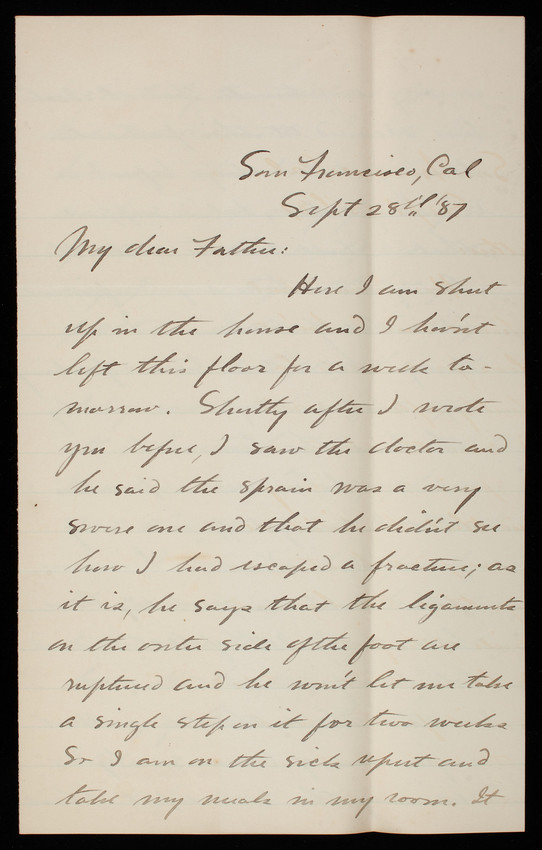 San Francisco, Cal
Sept 28th '87
My dear Father:
Here I am shut
up in the house and I havn't
left this floor for a week to-
morrow. Shortly after I wrote
you before, I saw the doctor and
he said the sprain was a very
severe one and that he didn't see
how I had escaped a fracture; as
it is, he says that the ligaments
on the outer side of the foot are
ruptured and he won't let me take
a single step on it for two weeks
So I am on the sick report and
take my meals in my room. It